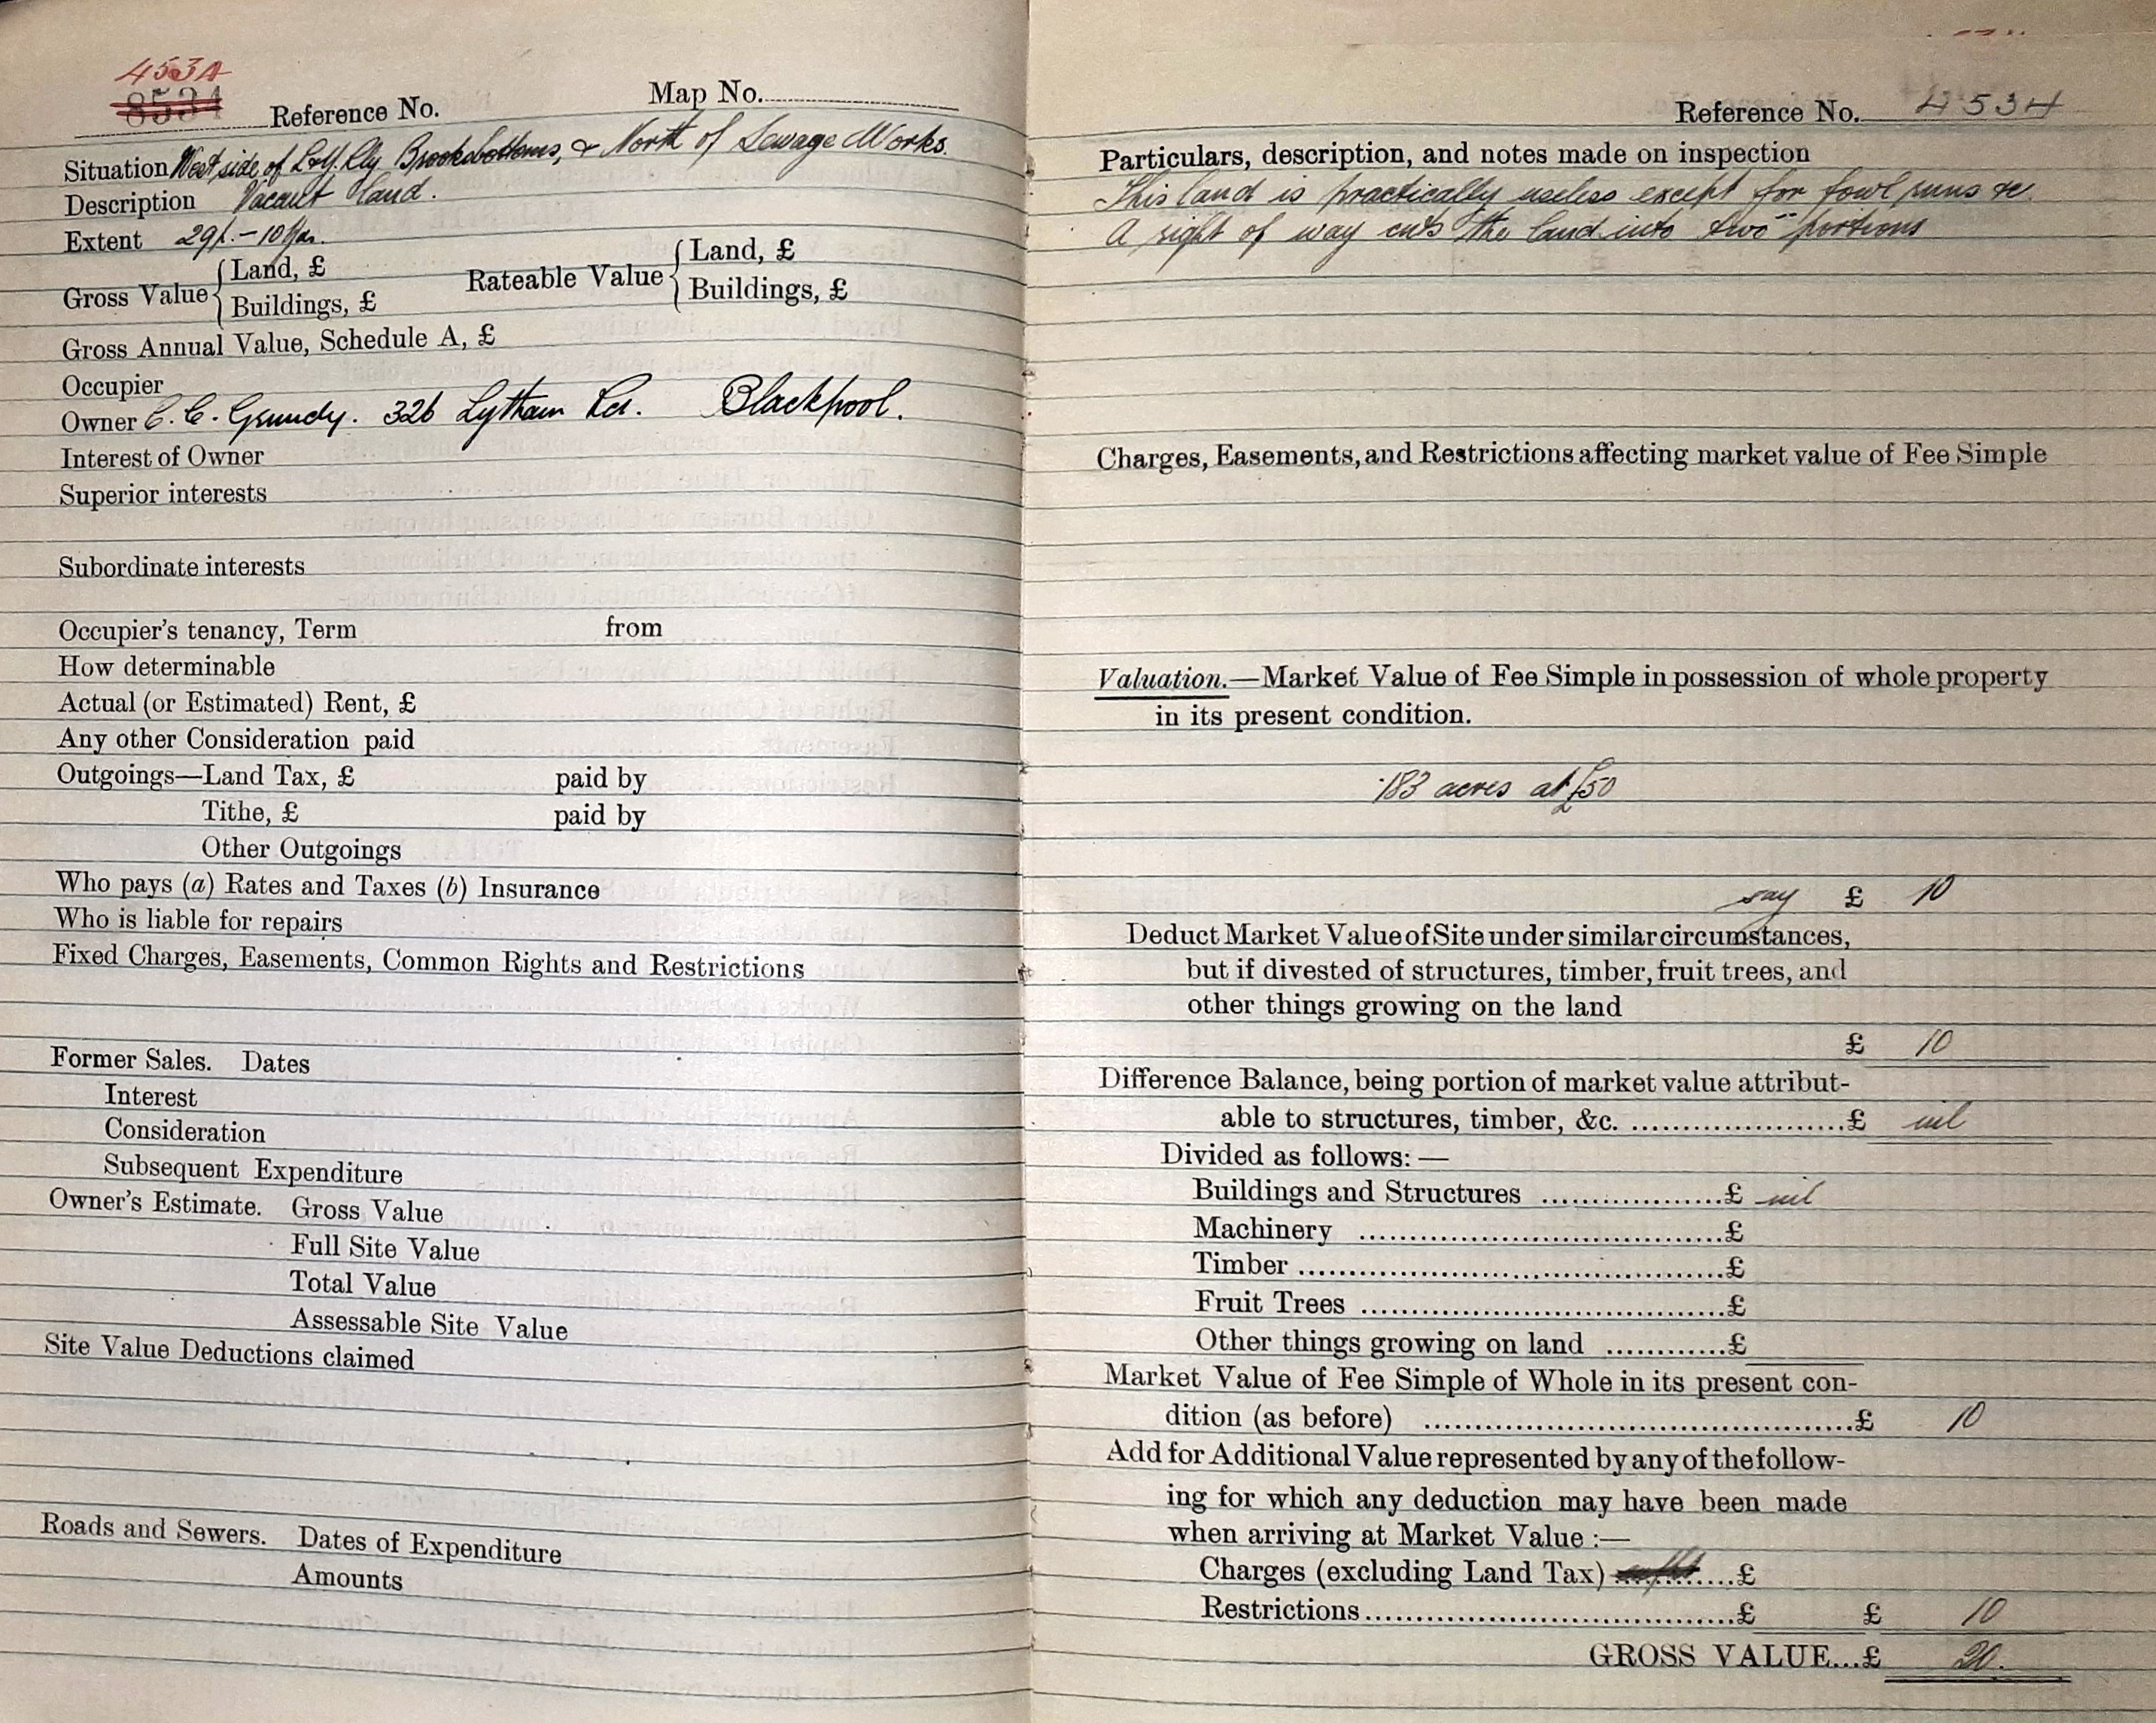 453A
8534
Reference No.
Map No.
Situation West side of L&Y. Rly Brooksbottoms, & North of Sewage Works.
Description Vacant land.
Extent 29p. - 10
Gross Value { Land, £
Buildings, £
Rateable Value { Land, £
Buildings, £
Gross Annual Value, Schedule A, £
Occupier
Owner C. C. Grundy. 326 Lytham Rd. Blackpool.
Interest of Owner
Superior interests
Subordinate interests
Occupier's tenancy, Term from
How determinable
Actual (or Estimated) Rent, £
Any other Consideration paid
Outgoings—Land Tax, £ paid by
Tithe, £ paid by
Other Outgoings
Who pays (a) Rates and Taxes (b) Insurance
Who is liable for repairs
Fixed Charges, Easements, Common Rights and Restrictions
Former Sales. Dates
Interest
Consideration
Subsequent Expenditure
Owner's Estimate. Gross Value
Full Site Value
Total Value
Assessable Site Value
Site Value Deductions claimed
Roads and Sewers. Dates of Expenditure
Amounts
Reference No. 4534
Particulars, description, and notes made on inspection
This land is practically useless except for fowl runs &c.
A right of way cuts the land into two portions
Charges, Easements, and Restrictions affecting market value of Fee Simple
Valuation.—Market Value of Fee Simple in possession of whole property
in its present condition.
·183 acres at £50
say £ 10
Deduct Market Value of Site under similar circumstances,
but if divested of structures, timber, fruit trees, and
other things growing on the land
£ 10
Difference Balance, being portion of market value attribut-
able to structures, timber, &c. ........................£ nil
Divided as follows:—
Buildings and Structures ....................£ nil
Machinery ........................................£
Timber ...............................................£
Fruit Trees ........................................£
Other things growing on land ............£
Market Value of Fee Simple of Whole in its present con-
dition (as before) ................................................£ 10
Add for Additional Value represented by any of the follow-
ing for which any deduction may have been made
when arriving at Market Value :—
Charges (excluding Land Tax) ............£
Restrictions..........................................£ £ 10
GROSS VALUE...£ 20.